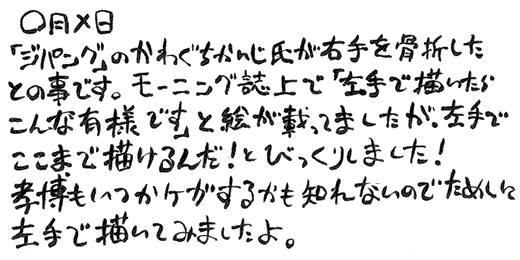 〇月×日
「ジパング」のかわぐちかいじ氏が右手を骨折した
との事です。モーニング誌上で「左手で描いたら
こんな有様です」と絵が載ってましたが、左手で
ここまで描けるんだ!とびっくりしました!
孝博もいつかケガするかも知れないのでためしに
左手で描いてみましたよ。